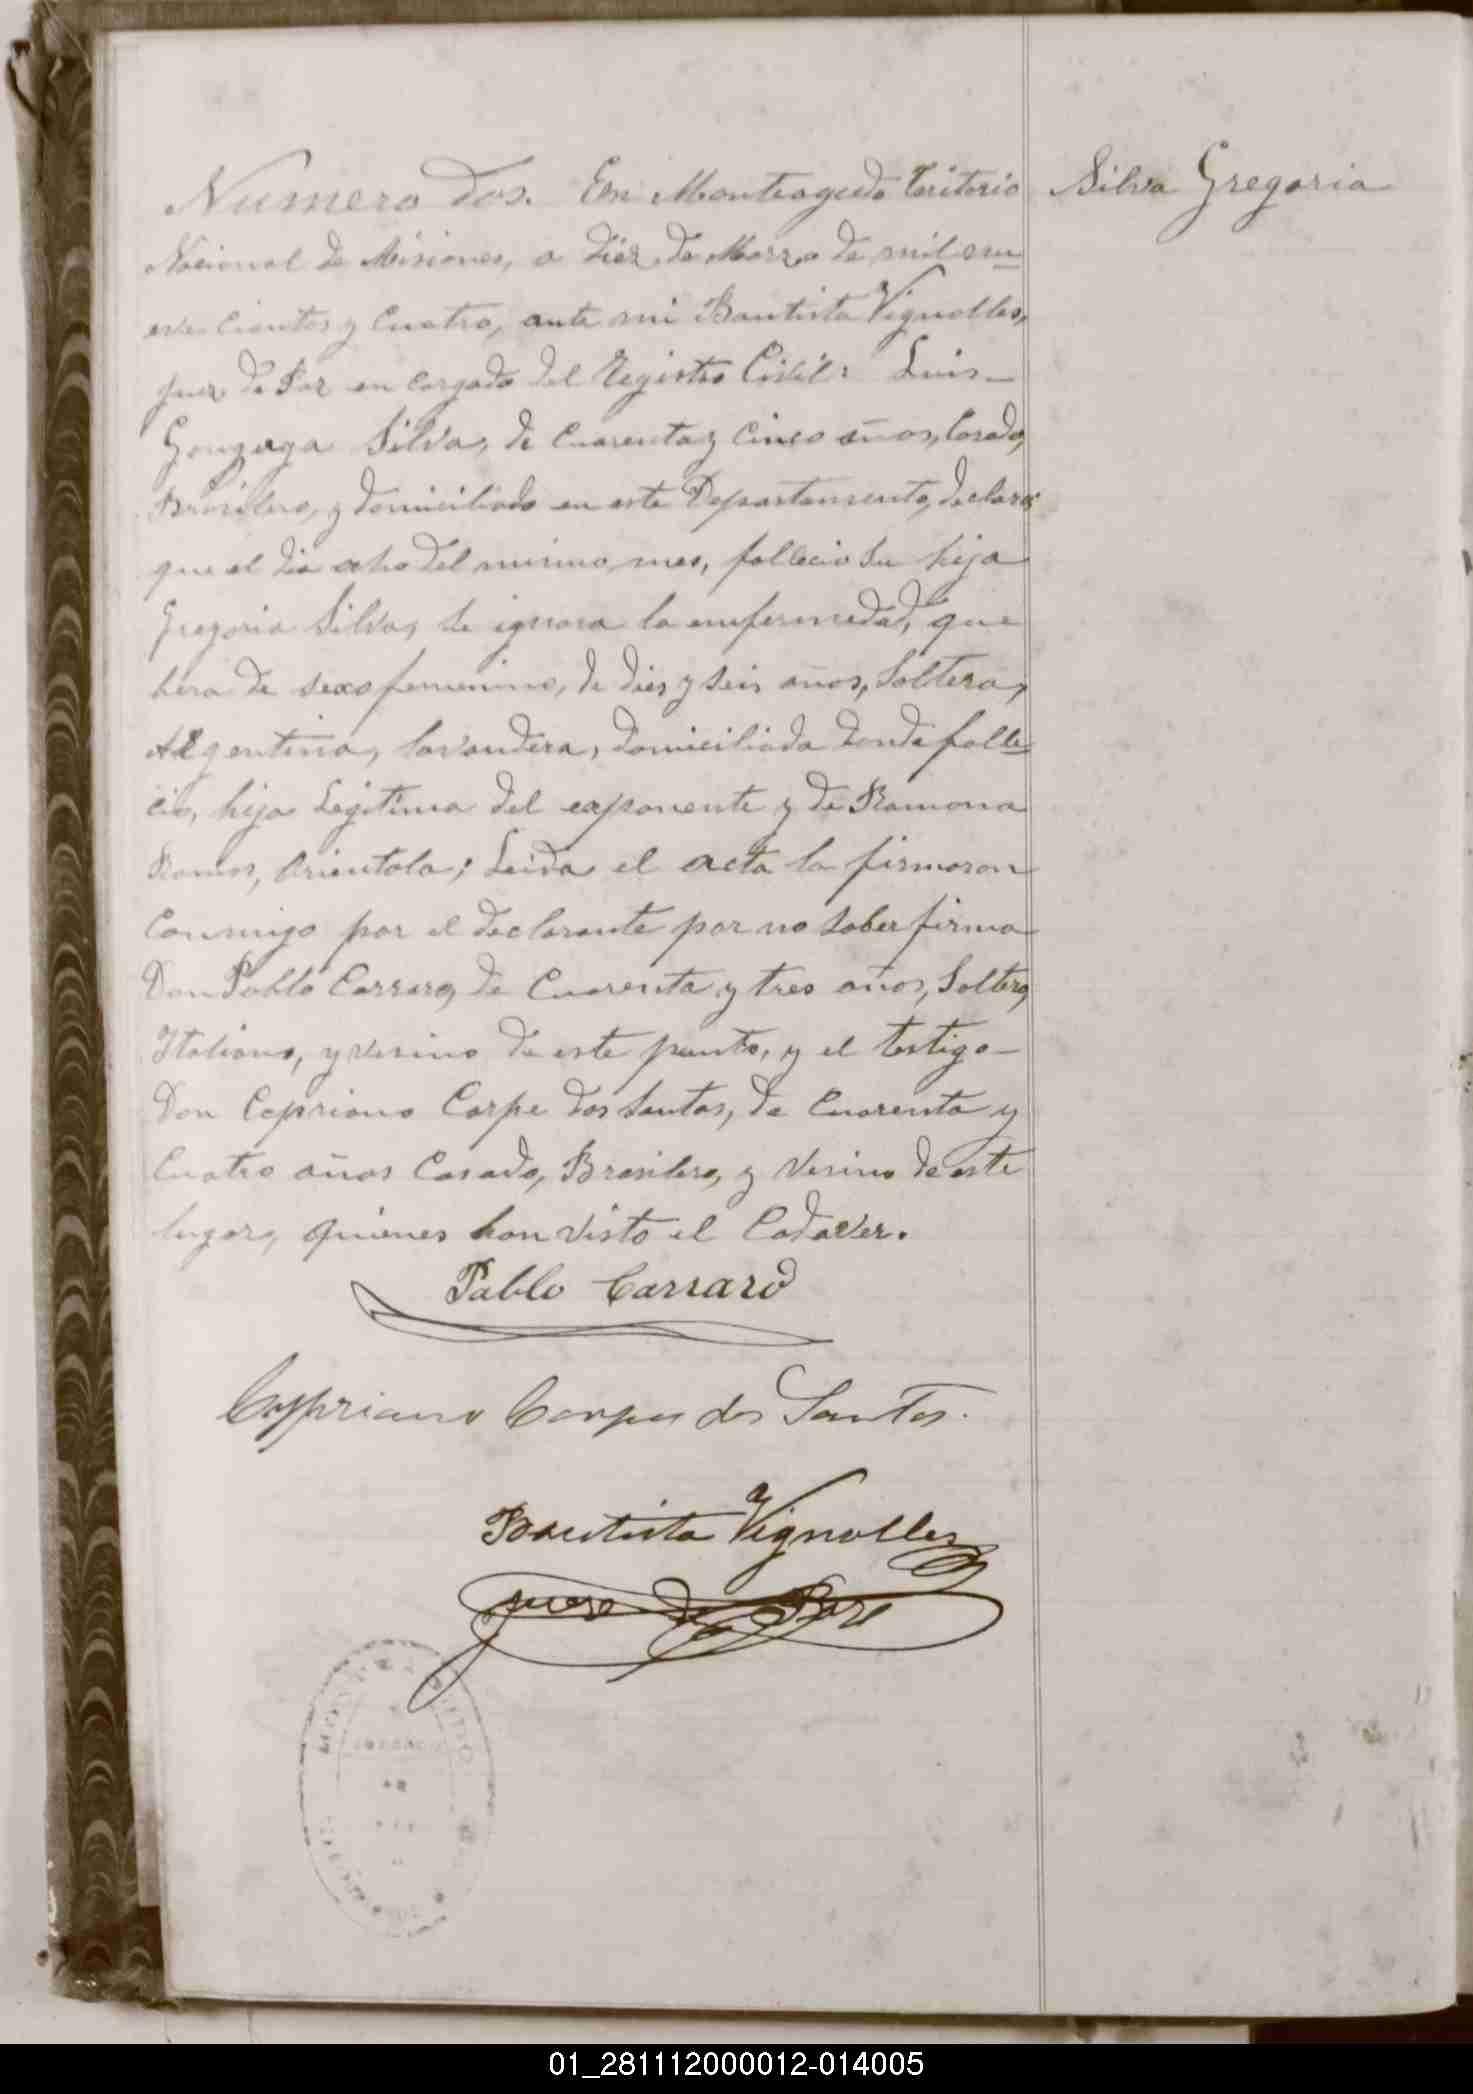 Numero Dos. En Monteagudo Teritorio
Silva Gregoria
Nacional de Misiones, a diez de Marzo de mil nu
eve cientos y Cuatro, ante mi Bautista Vignolles,
juez de Paz en cargado del Registro Civil: Luis
Gonzaga Silva, de Cuarenta y Cinco años, Casado,
Brasilero, y domiciliado en este Departamento, declaro
que el dia ocho del mismo mes, fallecio su hija
Gregoria Silva, se ignora la emfermedad, que
hera de sexo femenino, de dies y seis años, Soltera,
Argentina, lavandera, domiciliada donde falle
cio, hija Legitima del exponente y de Ramona
Ramos, Orientala; Leida el acta la firmaron
Conmigo por el declarante por no saber firma
Don Pablo Carraro, de Cuarenta y tres años, Soltero,
Italiano, y vesino de este punto, y el testigo
Don Cepriano Corpe dos Santos, de Cuarenta y
Cuatro años Casado, Brasilero, y Vesino de este
lugar, quienes han visto el Cadaver.
Pablo Carraro
Cypriano Corpes dos Santos.
Bautista Vignolles
juez de Paz
01_281112000012-014005